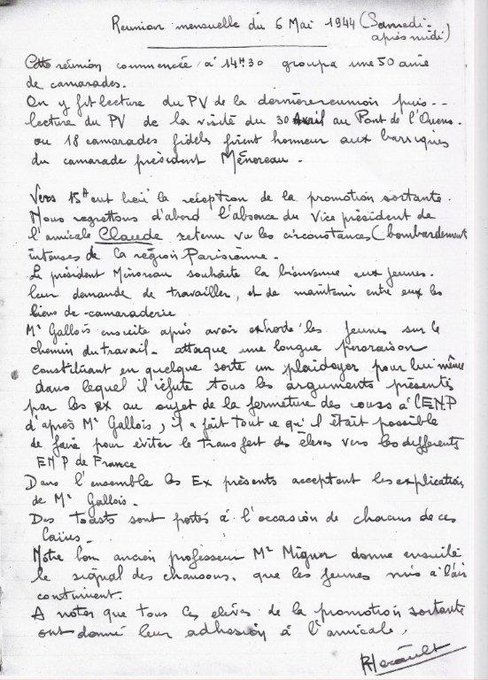 Reunion mensuelle du 6 Mai 1944 (Samedi-
après midi)
Cette réunion commencée à 14H30 groupa une 50 aine
de camarades.
On y fit lecture du PV de la dernière reunion puis--
lecture du PV de la visite du 30 Avril au Pont de l'Ouen
ou 18 camarades fidèles firent honneur aux barriques
du camarade président Ménoreau.
Vers 15H eut lieu la réception de la promotion sortante.
Nous regrettons d'abord l'absence du Vice président de
l'amicale Claude retenu vu les circonstances (bombardement
intenses de la région Parisienne.
Le président Ménoreau souhaite la bienvenue aux jeunes.
leur demande de travailler, et de maintenir entre eux les
liens de camaraderie
Mr Gallois ensuite après avoir exhorté les jeunes sur le
chemin du travail - attaque une longue peroraison
constituant en quelque sorte un plaidoyer pour lui même
dans lequel il réfute tous les arguments présentés
par les Ex au sujet de la fermeture des cours à l'ENP
d'après Mr Gallois, il a fait tout ce qu'il était possible
de faire pour éviter le transfert des élèves vers les differents
ENP de France
Dans l'ensemble les Ex présents acceptent les explication
de Mr Gallois.
Des toasts sont portés à l'occasion de chacun de ces
Laïus.
Notre bon ancien professeur Mr Migner donne ensuite
le signal des chansons, que les jeunes mis à l'air
continuent.
A noter que tous les elèves de la promotion sortante
ont donné leur adhesion à l'amicale.
RHerault